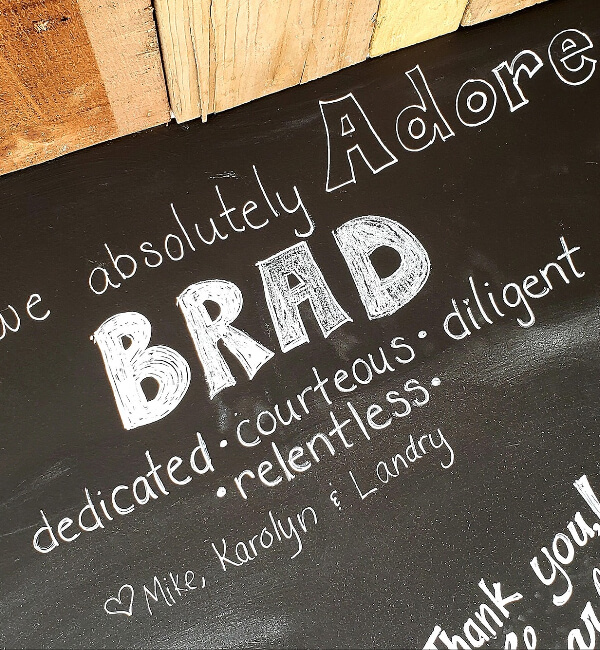 we absolutely Adore
BRAD
dedicated · courteous · diligent
· relentless ·
♡ Mike, Karolyn & Landry
Thank you!